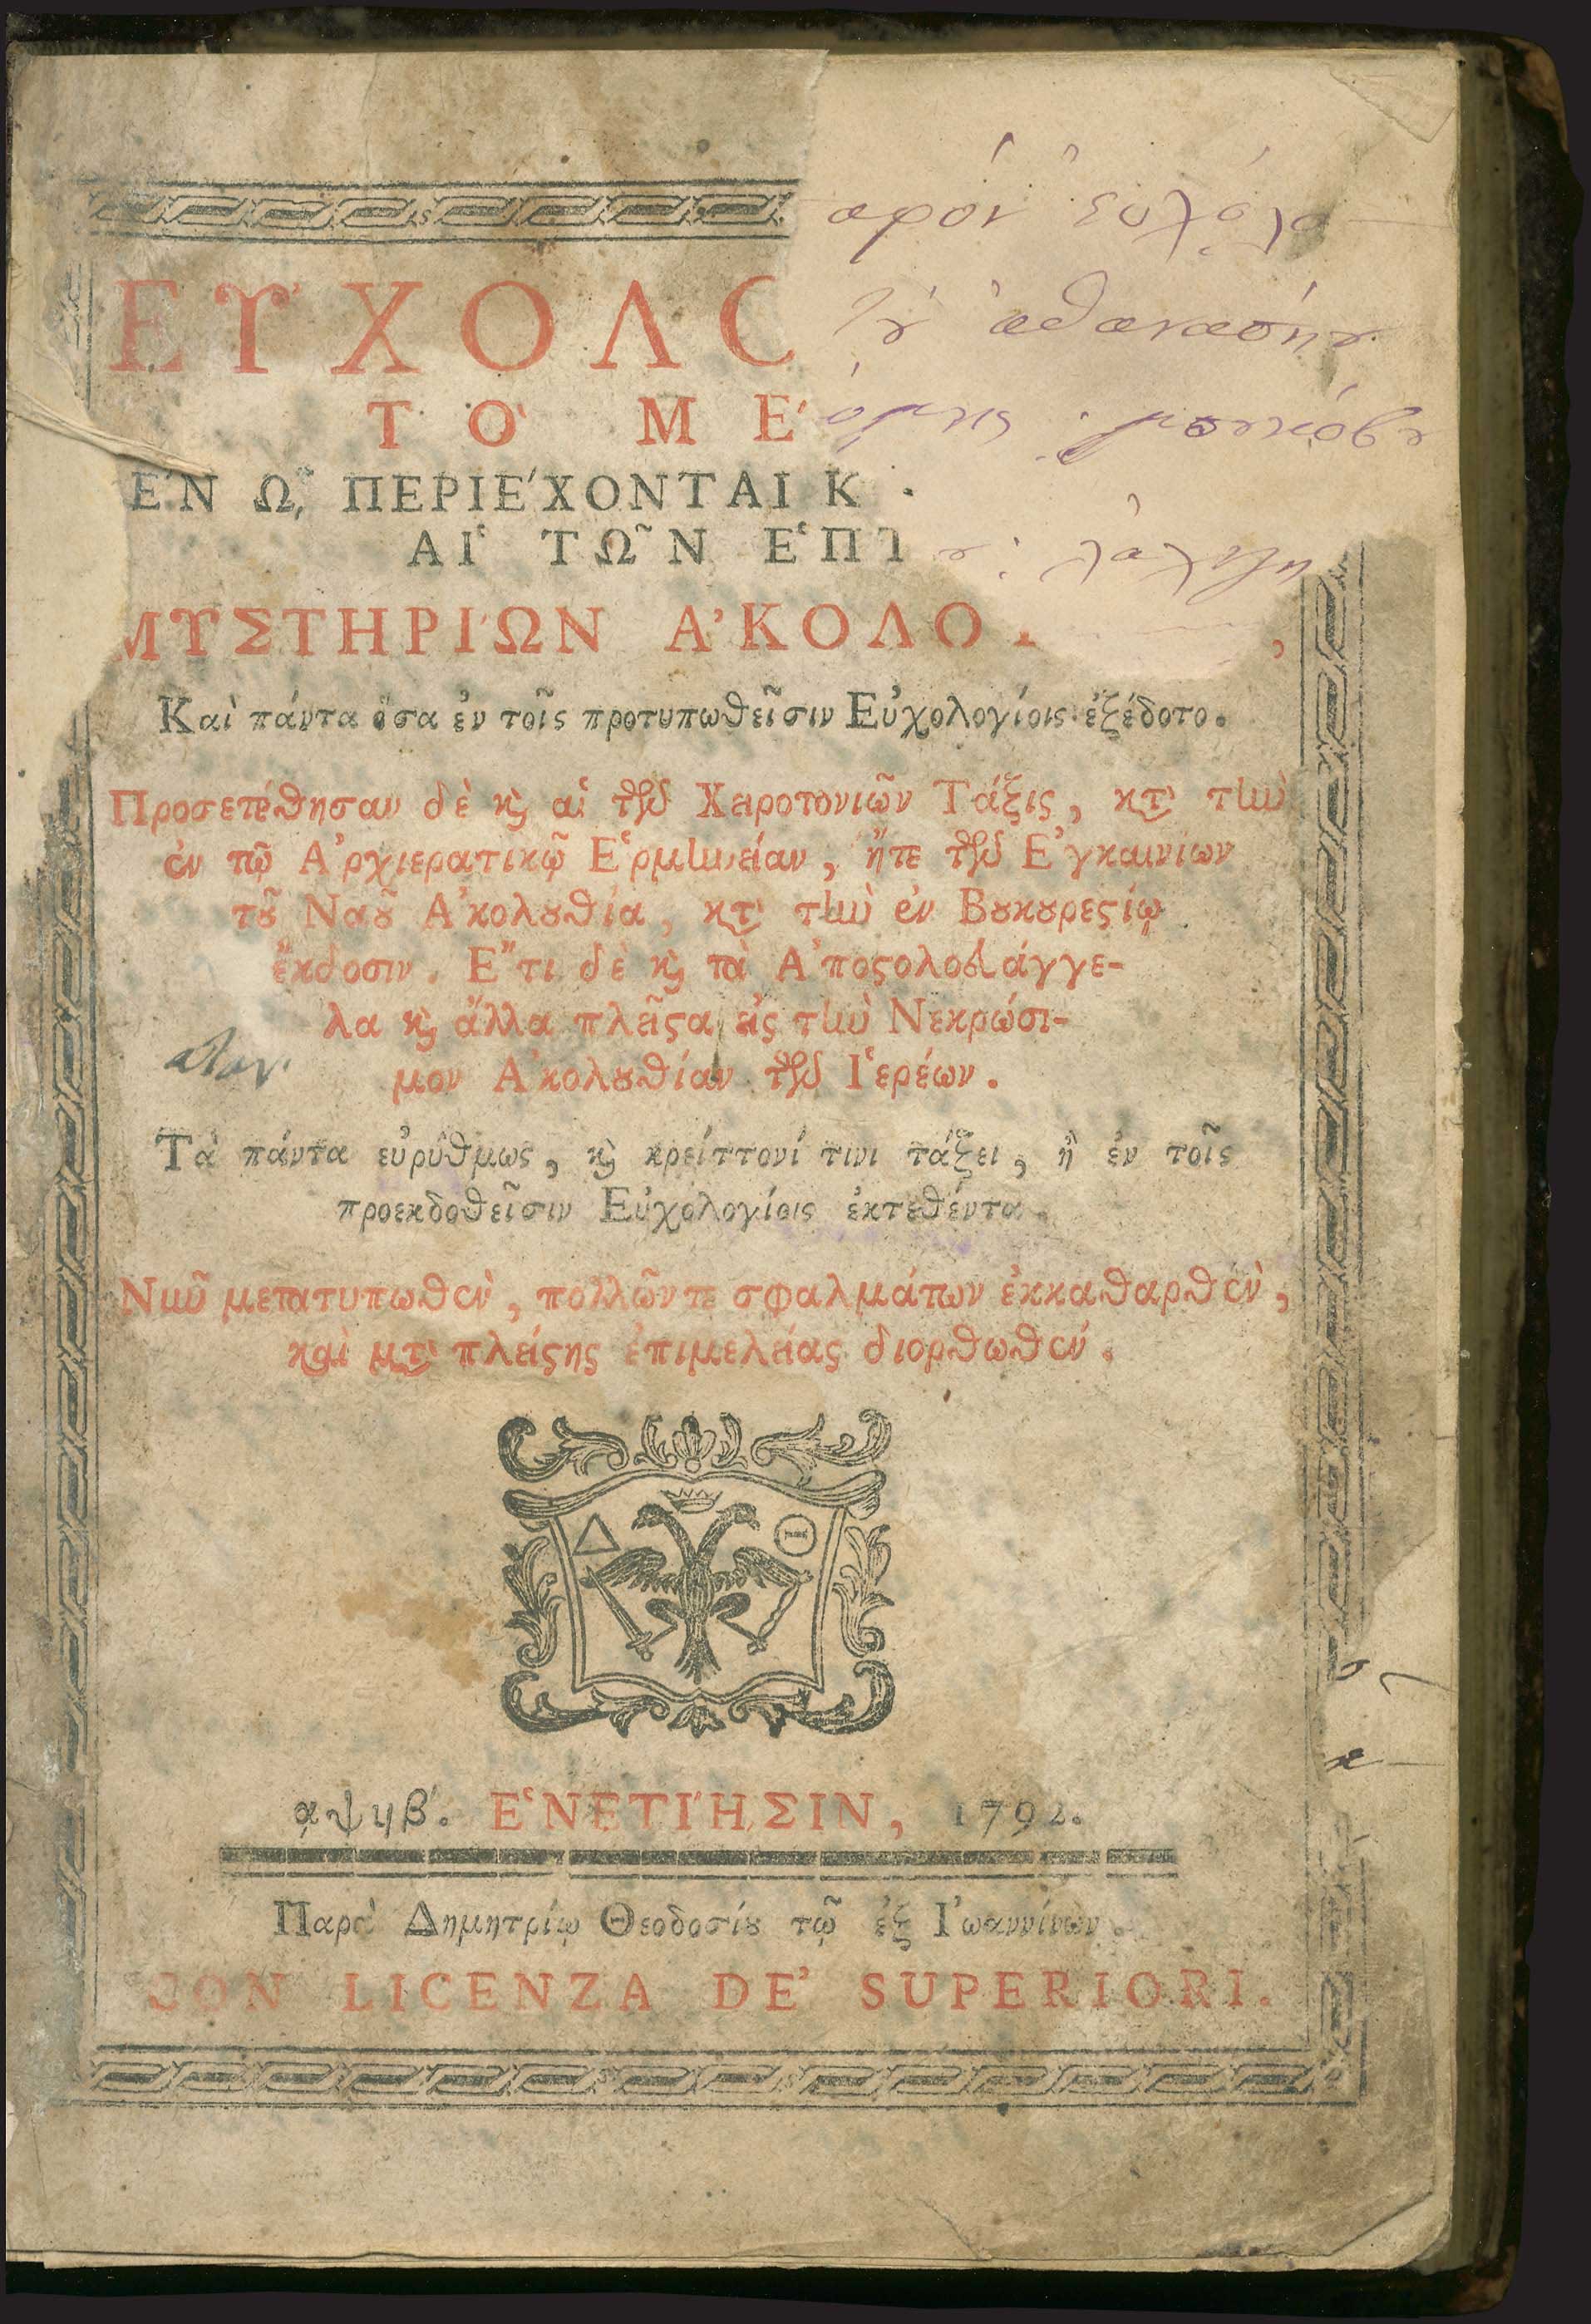 ΕΥ̓ΧΟΛΟ
ΤῸ ΜΈ
ΕΝ ῼ͂ ΠΕΡΙΈΧΟΝΤΑΙ Κ
ΑἹ ΤΩ͂Ν ἙΠΤ
ΜΥΣΤΗΡΊΩΝ ἈΚΟΛΟ ,
Καὶ πάντα ὅσα ἐν τοῖς προτυπωθεῖσιν Εὐχολογίοις ἐξέδοτο.
Προσετέθησαν δὲ ϗ̀ αἱ τῶν Χειροτονιῶν Τάξεις, κτ̀ τὴν
ἐν τῷ Ἀρχιερατικῷ Ἑρμηνείαν, ἥτε τῶν Ἐγκαινίων
τȣ͂ Ναȣ͂ Ἀκολȣθία, κτ̀ τὴν ἐν Βȣκȣρεϛίῳ
ἔκδοσιν. Ἔτι δὲ ϗ̀ τὰ Ἀποϛολοευάγγε-
λα ϗ̀ ἄλλα πλεῖϛα εἰς τὴν Νεκρώσι-
μον Ἀκολȣθίαν τῶν Ἱερέων.
Τὰ πάντα εὐρύθμως, ϗ̀ κρείττονί τινι τάξει, ἢ ἐν τοῖς
προεκδοθεῖσιν Εὐχολογίοις ἐκτεθέντα.
Νῦν μετατυπωθὲν, πολλῶντε σφαλμάτων ἐκκαθαρθὲν,
καὶ μτ̀ πλείϛης ἐπιμελείας διορθωθέν.
Δ Ι
͵αψϟβ΄. ἘΝΕΤΊΗΣΙΝ, 1792.
Παρὰ Δημητρίῳ Θεοδοσίȣ τῷ ἐξ Ἰωαννίνων.
CON LICENZA DE' SUPERIORI.